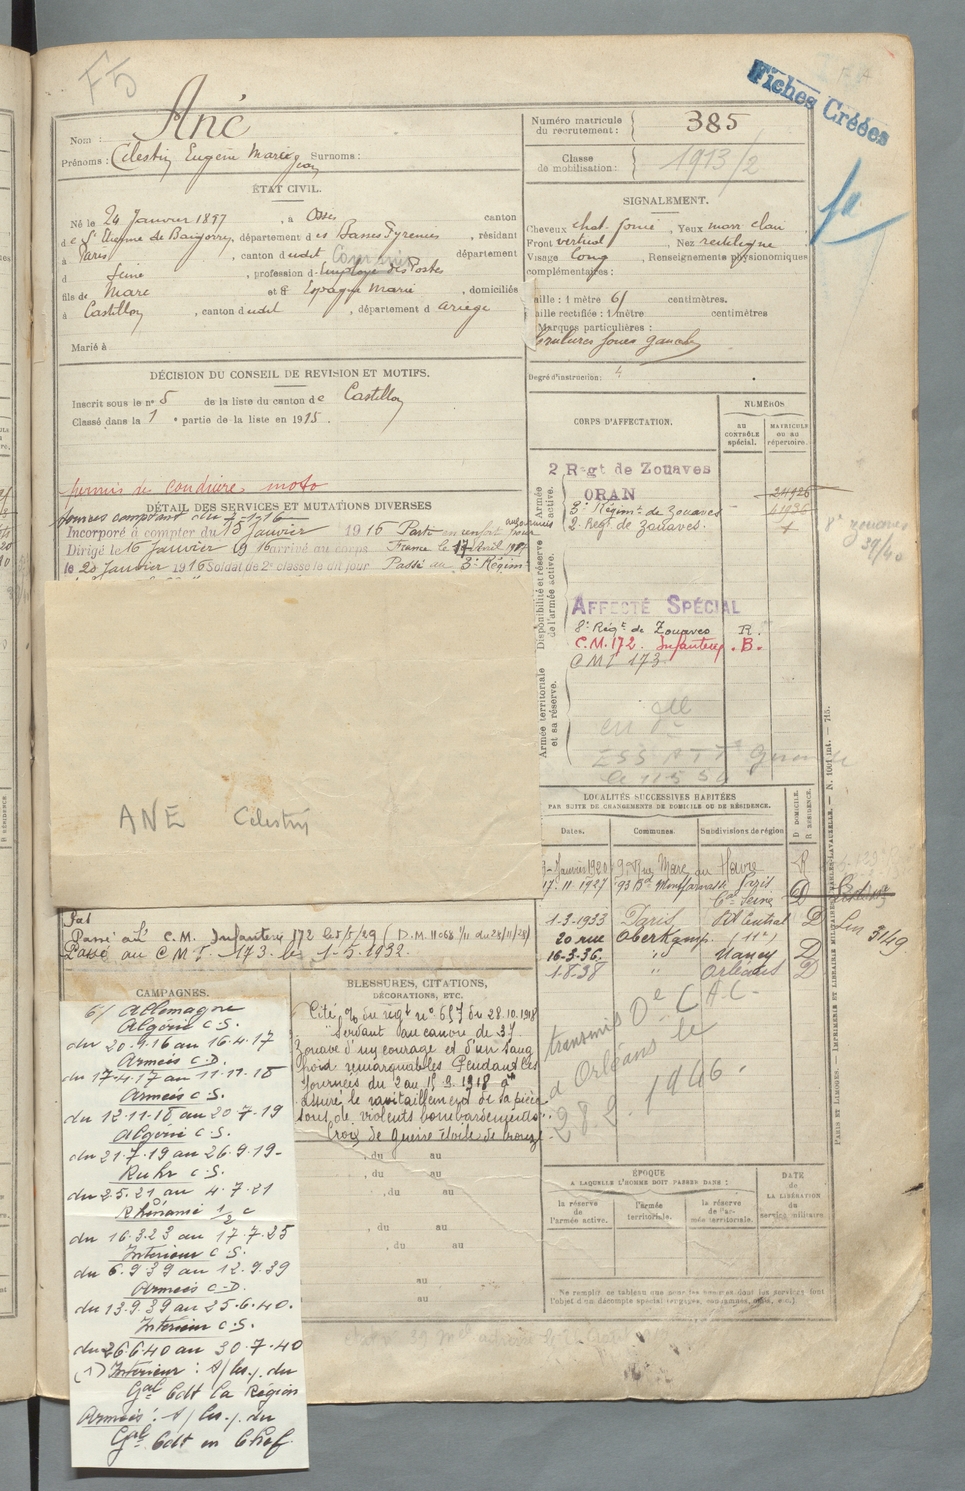 F5
Fiches Créées
Nom : Ané
Prénoms : Célestin Eugène Marie Jean Surnoms :
Numéro matricule du recrutement : 385
Classe de mobilisation : 1913/2
ÉTAT CIVIL.
Né le 24 Janvier 1897, à Osses canton
de St Etienne de Baigorry, département des Basses Pyrénées, résidant
à Paris, canton dudit, département
d Seine, profession d'employé des Postes
fils de Marc et de Espagne Marie, domiciliés
à Castillon, canton dudit, département d Ariège
Marié à
SIGNALEMENT.
Cheveux chat. foncé, Yeux marr. clair
Front vertical, Nez rectiligne
Visage long, Renseignements physionomiques
complémentaires :
Taille : 1 mètre 61 centimètres.
Taille rectifiée : 1 mètre centimètres
Marques particulières :
Brulures joue gauche
Degré d'instruction : 4
DÉCISION DU CONSEIL DE REVISION ET MOTIFS.
Inscrit sous le nº 5 de la liste du canton de Castillon
Classé dans la 1e partie de la liste en 1915.
permis de conduire moto
DÉTAIL DES SERVICES ET MUTATIONS DIVERSES
Incorporé à compter du 15 Janvier 1916 Parti en renfort aux armées pour
Dirigé le 16 Janvier 1916 arrivé au corps France le 17 Avril 1917
le 20 Janvier 1916 Soldat de 2e classe le dit jour Passé au 3e Régim-
CORPS D'AFFECTATION.
NUMÉROS
AU CONTRÔLE spécial.
MATRICULE OU AU répertoire.
Armée active.
2 Regt de Zouaves
ORAN
3e Régimt de Zouaves
2. Régt de Zouaves.
8e Zouaves
39/40
Disponibilité et réserve de l'armée active.
AFFECTÉ SPÉCIAL
8e Régt de Zouaves R.
C.M. 172 Infanterie .B.
CMI 173
Armée territoriale et sa réserve.
ANE Célestin
LOCALITÉS SUCCESSIVES HABITÉES
PAR SUITE DE CHANGEMENTS DE DOMICILE OU DE RÉSIDENCE.
D DOMICILE. R RÉSIDENCE.
Dates. Communes. Subdivisions de région
Janvier 1920 9 Rue Marc au Havre R
17.11.1927 93 Bd Montparnasse Paris
Cal Seine D
1.3.1933 Paris Pl Central D
20 rue Oberkampf (11e)
16-3-36 " Nancy D
1-8-38 " Orléans D
3149
Passé au C.M. Infanterie 172 le 1/5/29 (D.M. 11068 1/11 du 28/11/28)
Passé au C M I. 173. le 1-5.1932.
CAMPAGNES.
C/ Allemagne
Algérie C.S.
du 20.9.16 au 16.4.17
Armées C.D.
du 17.4.17 au 11.11.18
Armées C.S.
du 12.11.18 au 20.7.19
Algérie C.S.
du 21.7.19 au 26.9.19-
Ruhr C.S.
du 2.5.21 au 4.7.21
Rhénanie 1/2 C
du 16.3.23 au 17.7.25
Intérieur C.S.
du 6.9.39 au 12.9.39
Armées C-D.
du 13.9.39 au 25.6.40.
Intérieur C.S.
du 26.6.40 au 30.7.40
(1) Intérieur : du
Gal Cdt la Région
Armées : du
Gal Cdt en Chef.
BLESSURES, CITATIONS, DÉCORATIONS, ETC.
Cité O/ du régt nº 657 du 28.10.1918
"Servant au canon de 37.
Zouave d'un courage et d'un sang
froid remarquables Pendant les
journées du 2 au 9.1918 a
assuré le ravitaillement de sa pièce
sous de violents bombardements.
Croix de guerre étoile de bronze
, du au
, du au
, du au
, du au
, du au
au
au
transmis D C A C
d'Orléans le
28.2.1946.
ÉPOQUE
A LAQUELLE L'HOMME DOIT PASSER DANS :
la réserve de l'armée active.
l'armée territoriale.
la réserve de l'armée territoriale.
DATE de LA LIBÉRATION du service militaire.
PARIS ET LIMOGES. — IMPRIMERIE ET LIBRAIRIE MILITAIRES CHARLES-LAVAUZELLE. — N. 1001 int. — 715.